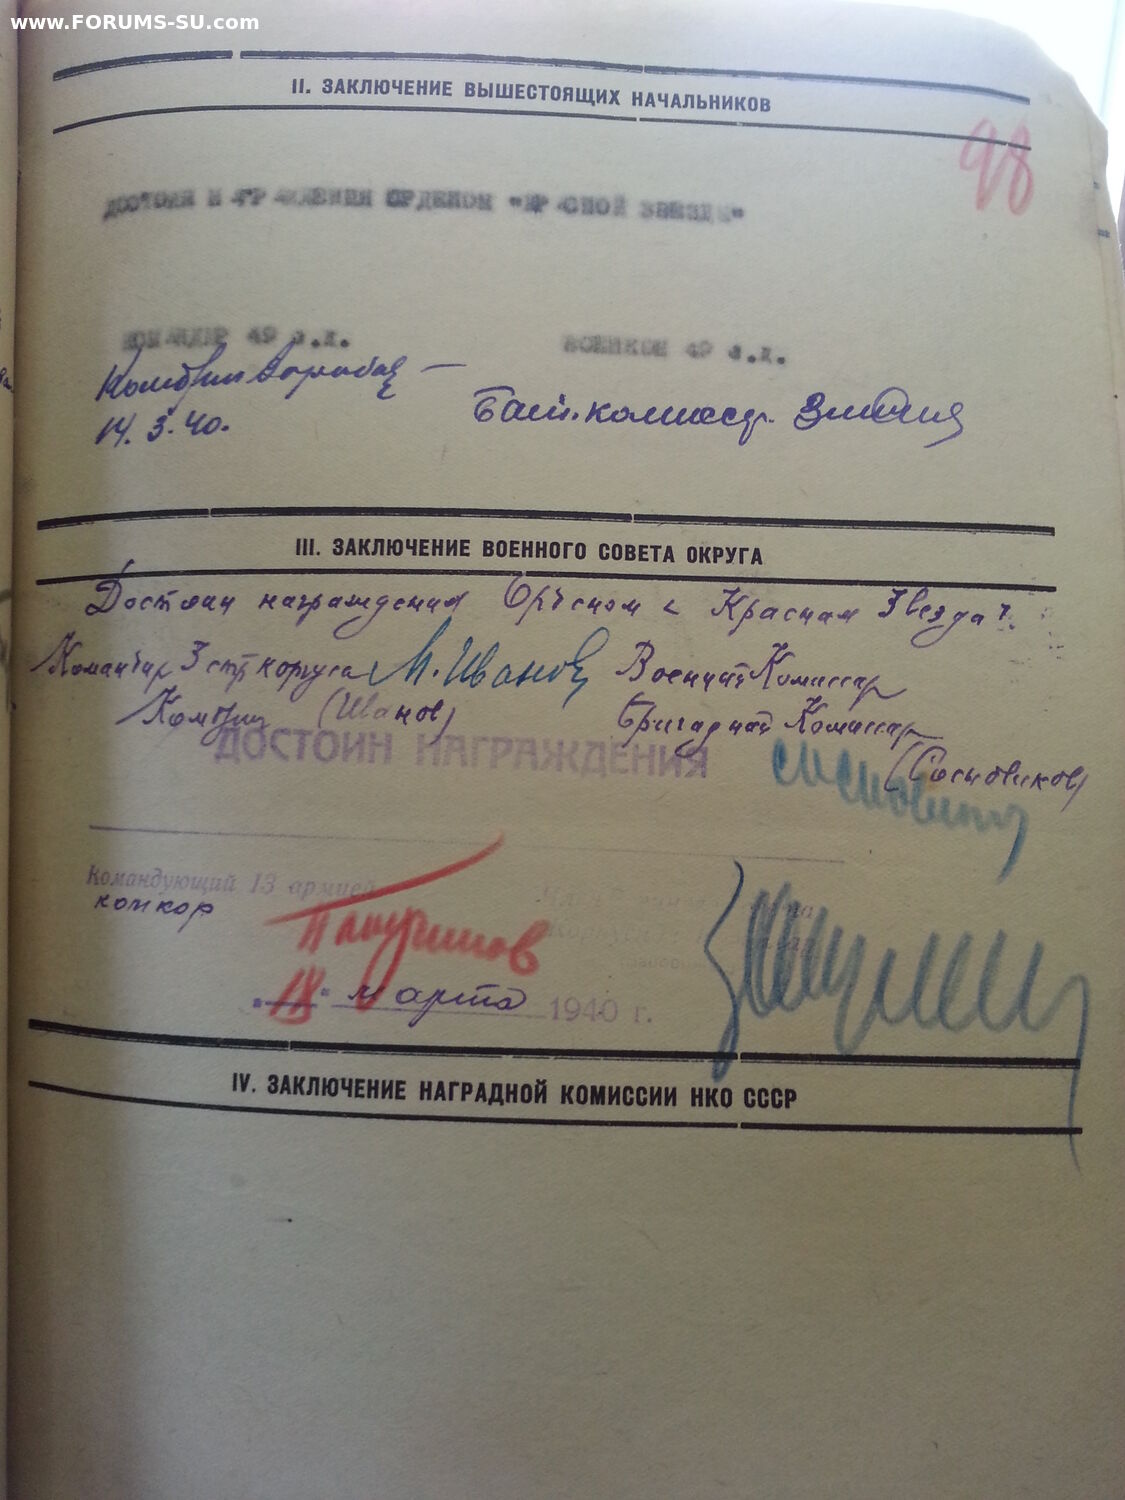 www.FORUMS-SU.com
II. ЗАКЛЮЧЕНИЕ ВЫШЕСТОЯЩИХ НАЧАЛЬНИКОВ
98
ДОСТОИН НАГРАЖДЕНИЯ ОРДЕНОМ "КРАСНОЙ ЗВЕЗДЫ"
КОМАНДИР 49 с.д.
ВОЕНКОМ 49 с.д.
Комбриг
14.3.40.
Бат. комиссар
III. ЗАКЛЮЧЕНИЕ ВОЕННОГО СОВЕТА ОКРУГА
Достоин награждения Орденом "Красная Звезда".
Командир 3 стр корпуса М. Иванов Военный Комиссар
Комбриг (Иванов) Бригадный Комиссар
ДОСТОИН НАГРАЖДЕНИЯ
(Сосновиков)
Командующий 13 армией
комкор
18 марта 1940 г.
IV. ЗАКЛЮЧЕНИЕ НАГРАДНОЙ КОМИССИИ НКО СССР